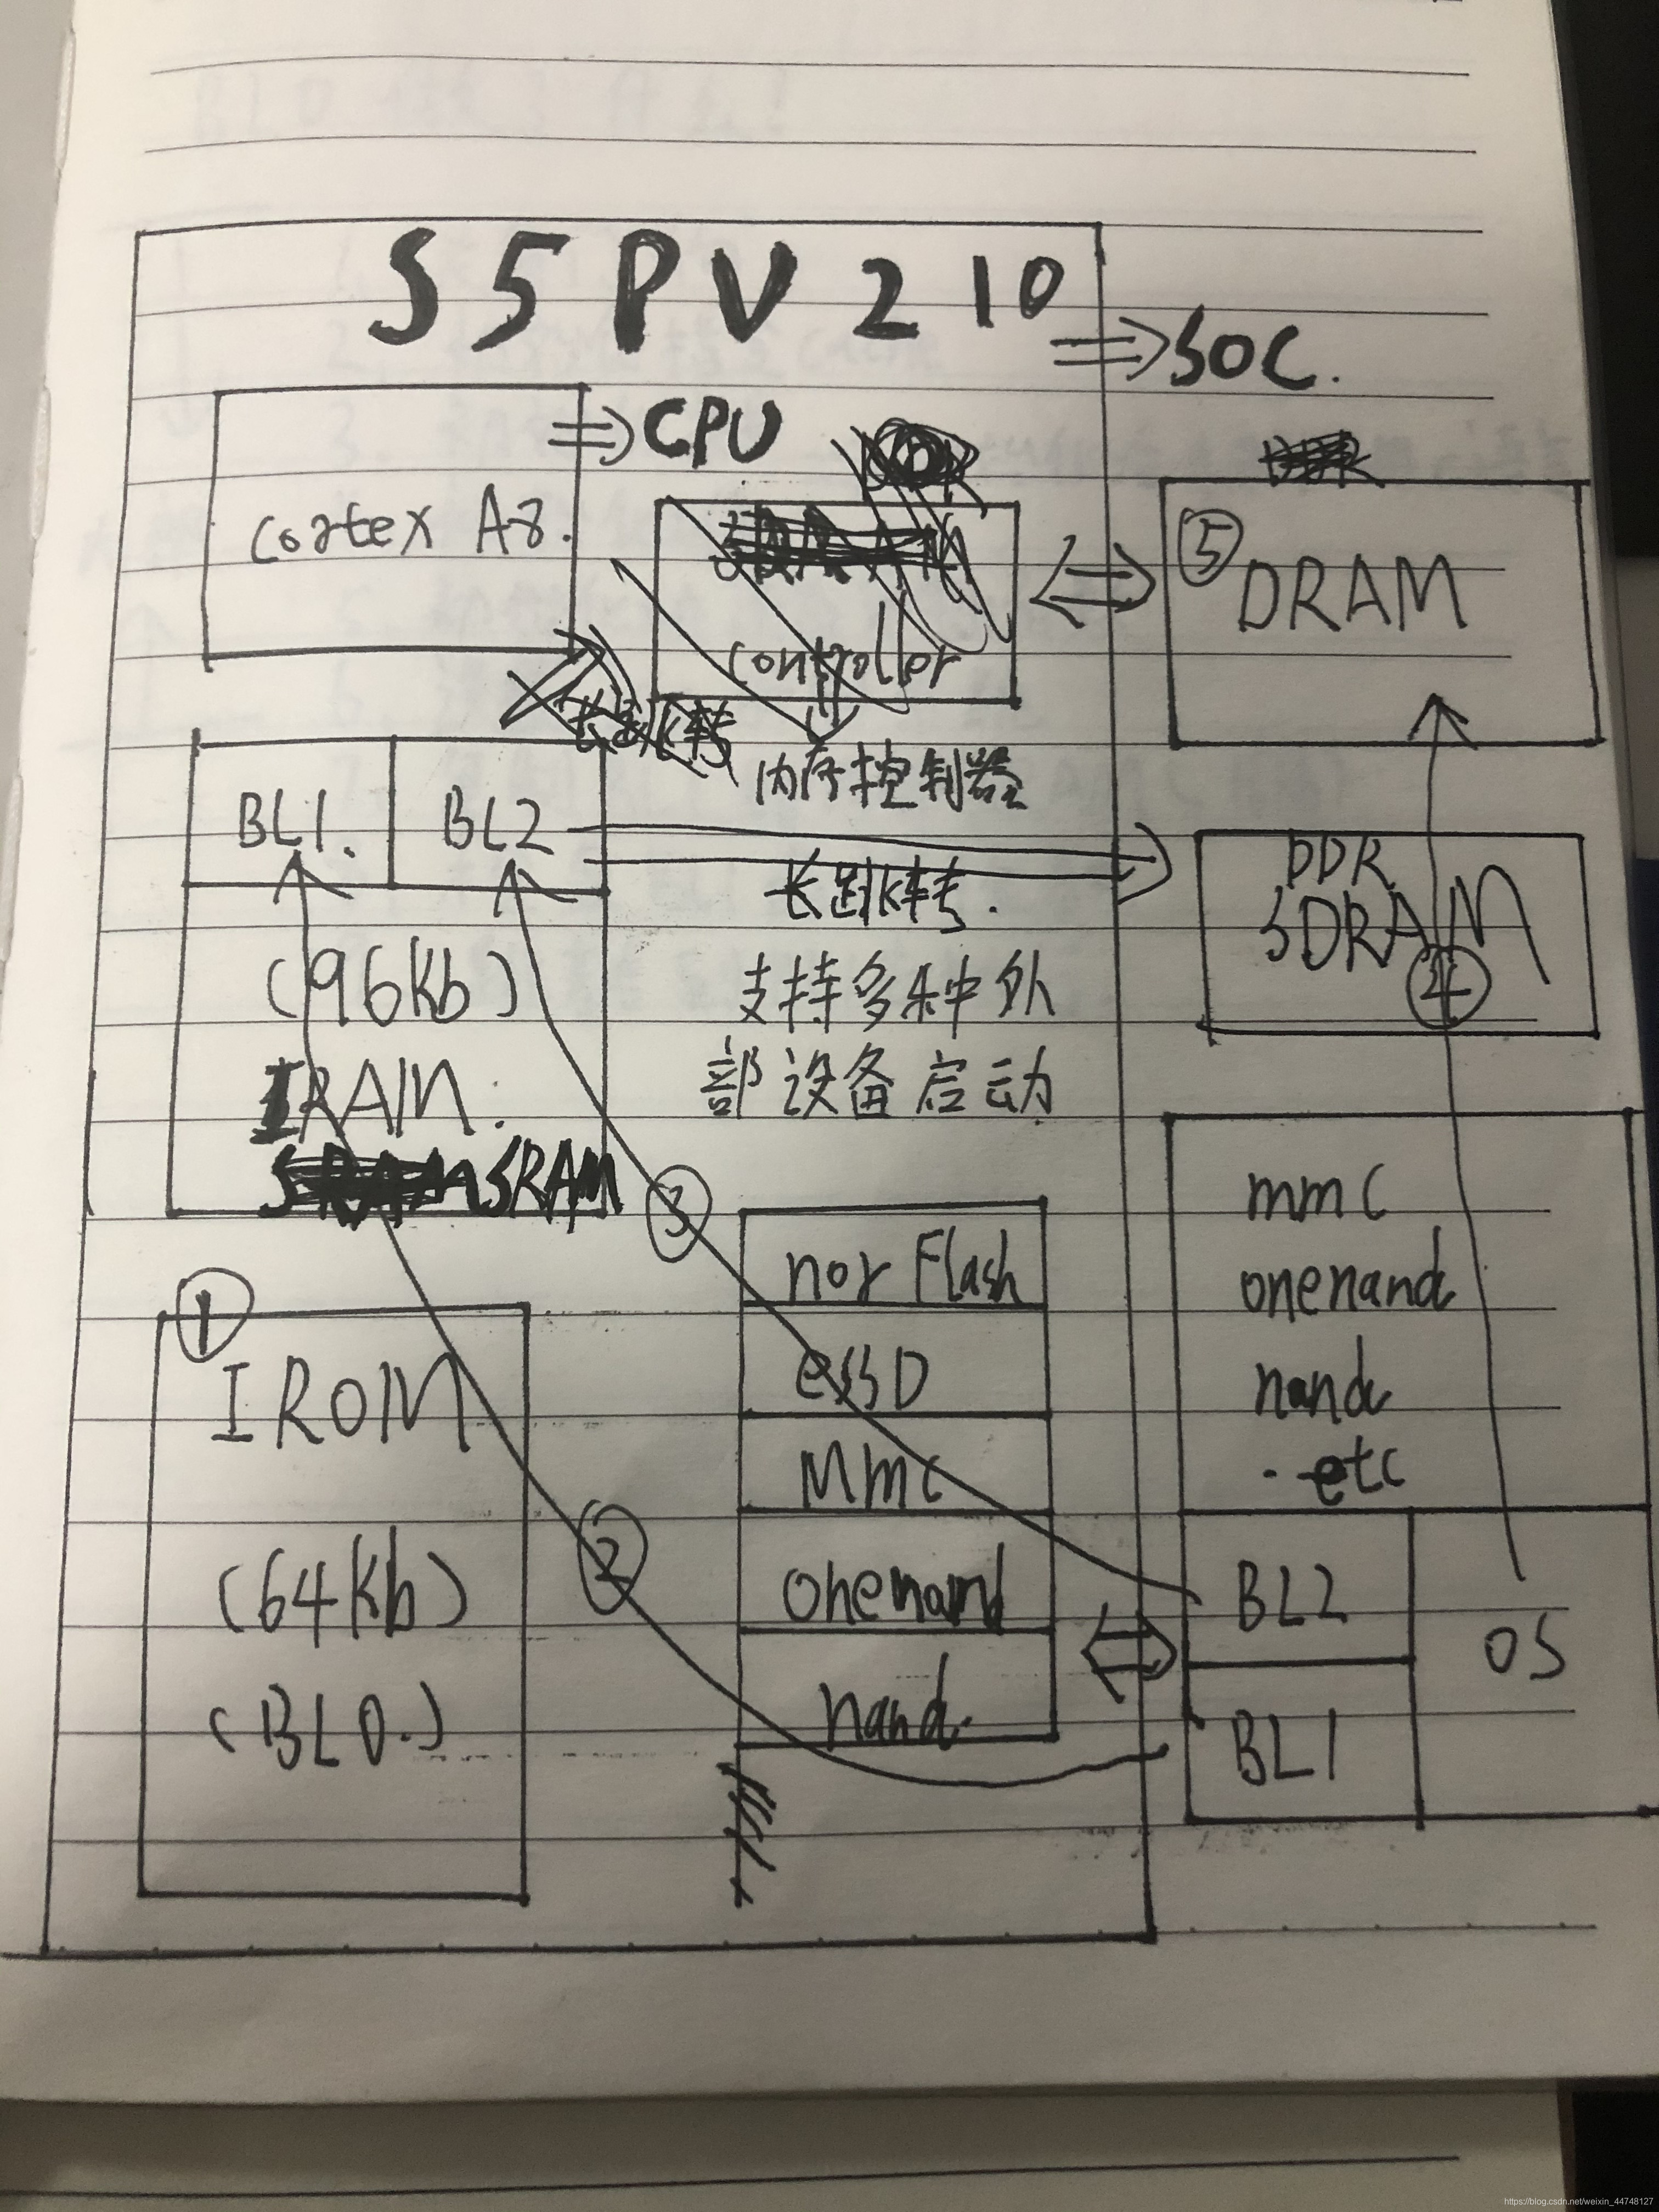 S5PV210
⇒SOC.
⇒CPU
Cortex A8.
controller
⑤
DRAM
内存控制器
BL1.
BL2
长跳转.
DDR
SDRAM
④
(96kb)
IRAM.
SRAM
支持多种外
部设备启动
③
mmc
onenand
nand
.etc
nor Flash
eSSD
Mmc
onenand
nand.
①
IROM
(64kb)
(BL0.)
②
BL2
OS
BL1
https://blog.csdn.net/weixin_44748127